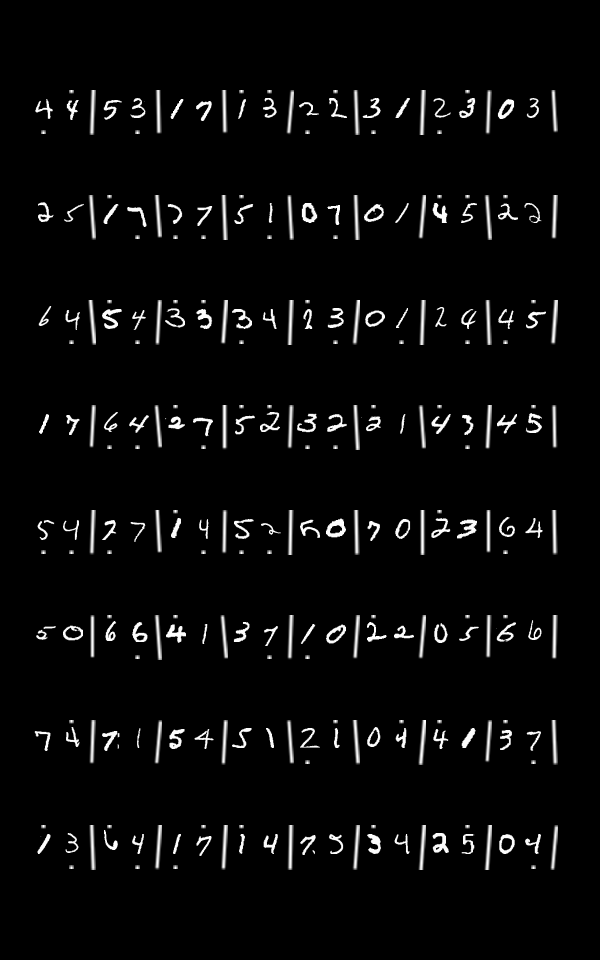 4 4 | 5 3 | 1 7 | 1 3 | 2 2 | 3 1 | 2 3 | 0 3 |
2 5 | 1 7 | 7 | 5 1 | 0 7 | 0 1 | 4 5 | 2 2 |
6 4 | 5 4 | 3 3 | 3 4 | 2 3 | 0 1 | 2 4 | 4 5 |
1 7 | 6 4 | 2 7 | 5 2 | 3 2 | 2 1 | 4 3 | 4 5 |
5 4 | 2 7 | 1 4 | 5 2 | 5 0 | 7 0 | 2 3 | 6 4 |
5 0 | 6 6 | 4 1 | 3 7 | 1 0 | 2 2 | 0 5 | 6 6 |
7 4 | 7 1 | 5 4 | 5 1 | 2 1 | 0 4 | 4 1 | 3 7 |
1 3 | 6 4 | 1 7 | 1 4 | 7 5 | 3 4 | 2 5 | 0 4 |